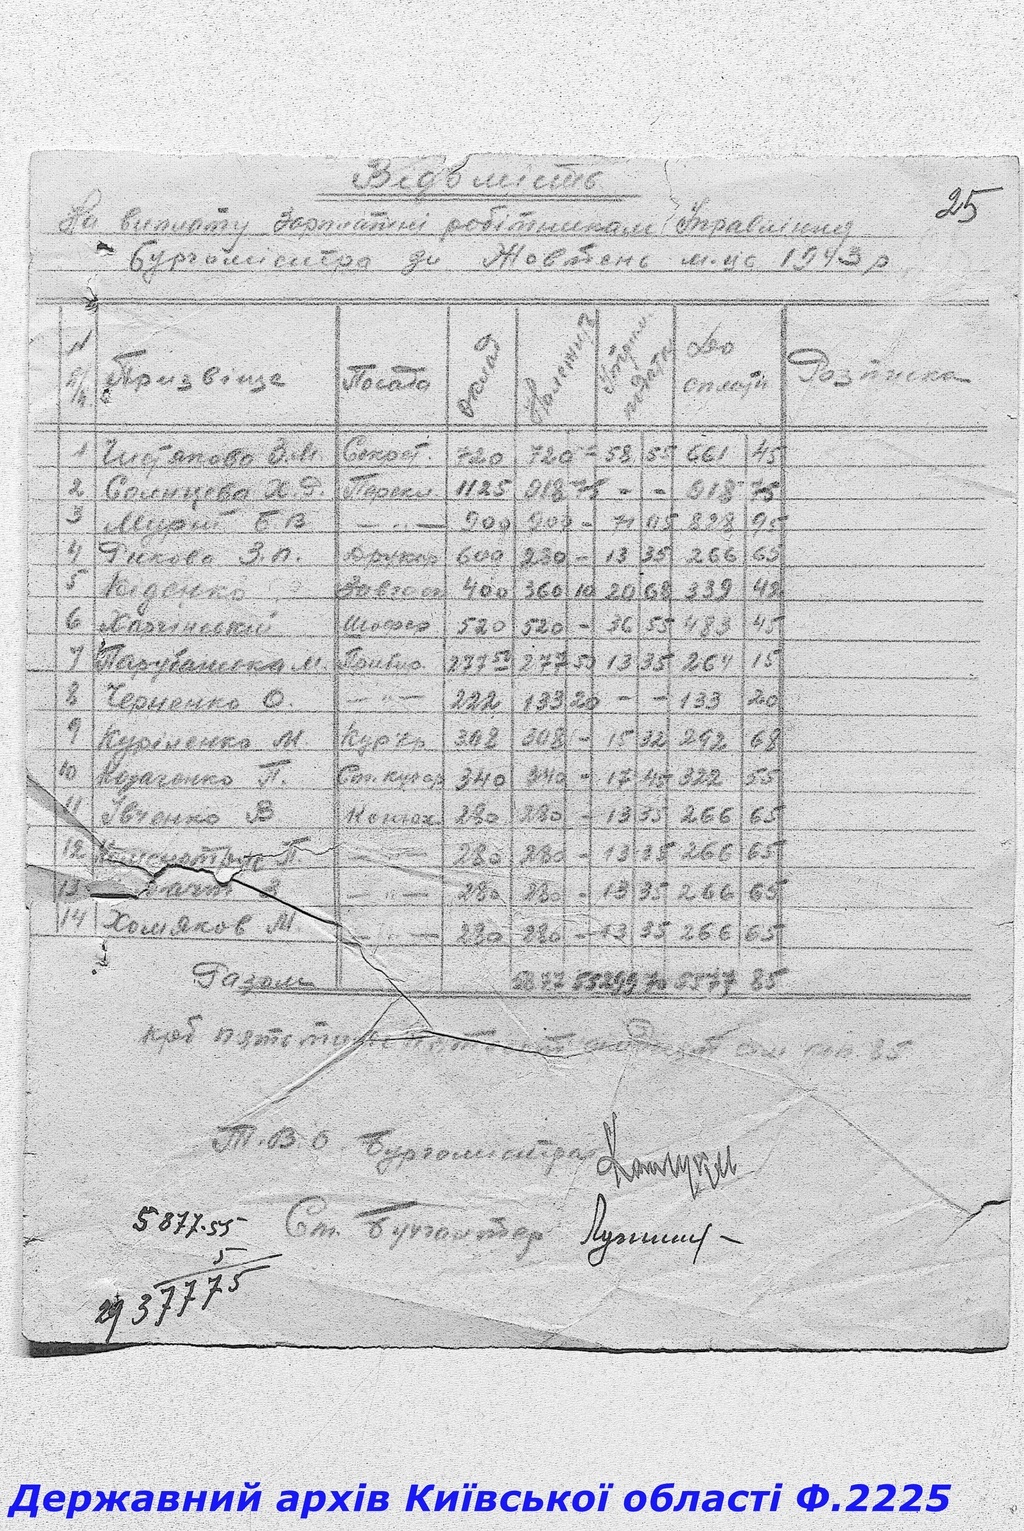 Відомість
25
На виплату Зарплатні робітникам Управління
Бургомістра за Жовтень м-це 1943 р
N п/п Призвіще Посада Оклад Належить Утрим. податк До сплати Розписка
1 Чистякова З.М. Секрет. 720 720 - 58 55 661 45
2 Солнцева Х.Ф. Перекл. 1125 918 75 - - 918 75
3 Мурий Б В — " — 900 900 - 71 05 828 95
4 Рикова З.П. Друкар 600 280 - 13 35 266 65
5 Кіденко Завгосп 400 360 10 20 68 339 42
6 Шофер 520 520 - 36 55 483 45
7 М. Прибир. 277 50 277 50 13 35 264 15
8 Черненко О. — " — 222 133 20 - - 133 20
9 Куріленко М Кур'єр 308 308 - 15 32 292 68
10 Козаченко П. Ст. кучер 340 340 - 17 45 322 55
11 Івченко В Конюх 280 280 - 13 35 266 65
12 П. — " — 280 280 - 13 35 266 65
13 — " — 280 280 - 13 35 266 65
14 Хомяков М. — " — 280 280 - 13 35 266 65
Разом 5877 55 299 70 5577 85
крб п'ять тисяч сім коп. 85
Т.В.О. Бургомістра
5877.55 Ст. Бухгалтер
5
29 37775
Державний архів Київської області Ф.2225